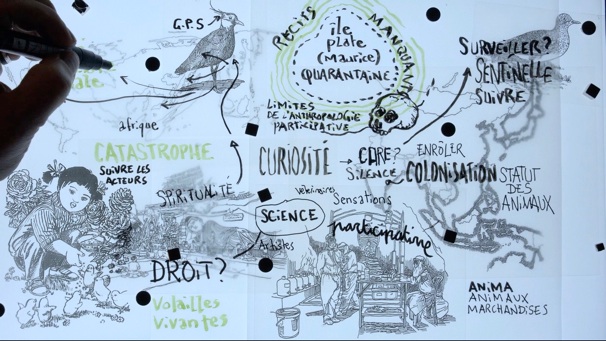 G.P.S
RÉCITS MANQUANTS
île
plate
(Maurice)
QUARANTAINE
SURVEILLER?
SENTINELLE
SUIVRE
LIMITES
DE L'ANTHROPOLOGIE
PARTICIPATIVE
afrique
CATASTROPHE
SUIVRE LES
ACTEURS
CURIOSITÉ
CARE?
SILENCE
ENRÔLER
COLONISATION
STATUT
DES
ANIMAUX
SPIRITUALITÉ
Vétérinaires
Sensations
SCIENCE
participative
Artistes
DROIT?
Volailles
Vivantes
ANIMA
ANIMAUX
MARCHANDISES